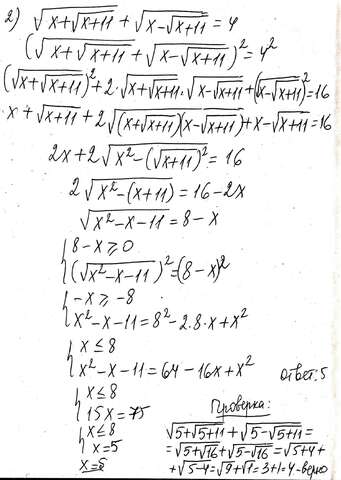 2) √(x+√(x+11)) + √(x-√(x+11)) = 4
(√(x+√(x+11)) + √(x-√(x+11)))² = 4²
(√(x+√(x+11)))² + 2·√(x+√(x+11))·√(x-√(x+11)) + (√(x-√(x+11)))² = 16
x+√(x+11) + 2√((x+√(x+11))(x-√(x+11))) + x-√(x+11) = 16
2x+2√(x²-(√(x+11))²) = 16
2√(x²-(x+11)) = 16-2x
√(x²-x-11) = 8-x
{ 8-x ≥ 0
(√(x²-x-11))² = (8-x)²
{ -x ≥ -8
x²-x-11 = 8²-2·8·x+x²
{ x ≤ 8
x²-x-11 = 64-16x+x²
ответ: 5
{ x ≤ 8
15x = 75
{ x ≤ 8
x=5
x=5
Проверка:
√(5+√(5+11)) + √(5-√(5+11)) =
= √(5+√16) + √(5-√16) = √(5+4) +
+ √(5-4) = √9 + √1 = 3+1 = 4 - верно